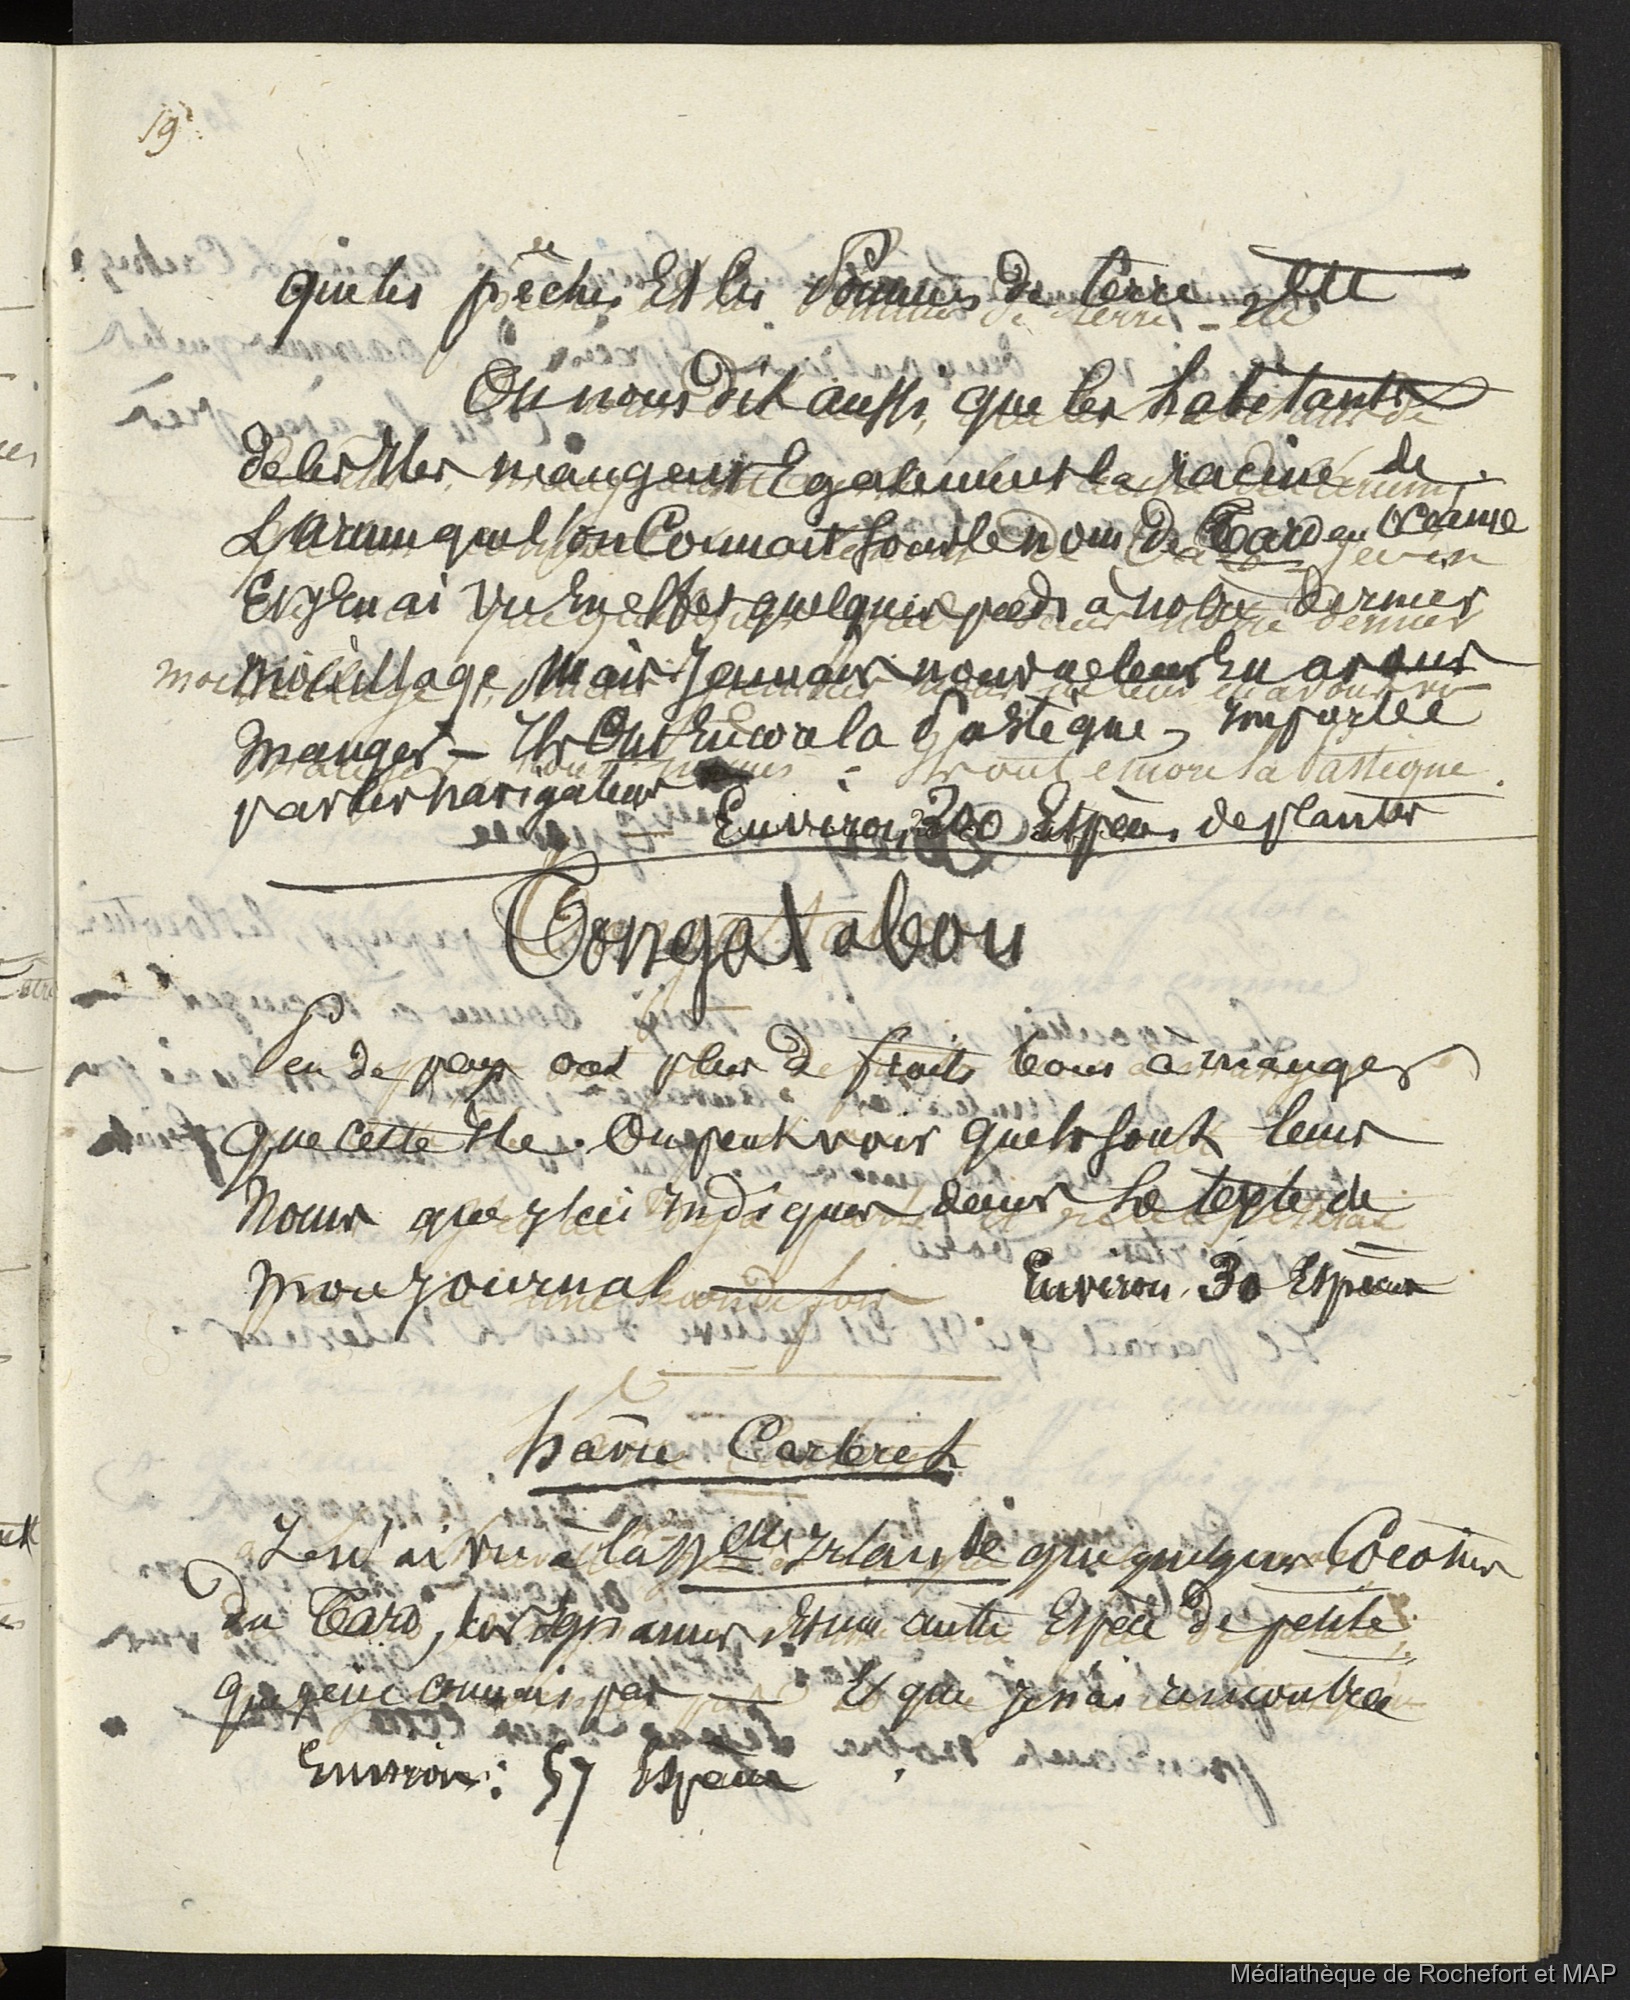 19
que les pêches Et les Pommes de terre - etc
On nous dit aussi, que les habitants
de les Iles mangent Egalement la racine de
L'arum que l'on Connait sous le nom de Taro en Océanie
Et j'en ai vu En effet quelques pieds à notre dernier
mouillage, Mais Jamais nous ne leur En avons
manger - Ils Ont Encore la Pastèque, Importée
par les navigateurs
Environ 200 Espèces de plantes
Tongatabou
Peu de pays ont plus de fruits bons à manger
que cette Ile. On peut voir quels sont leurs
Noms que j'ai Indiquer dans Le texte de
Mon Journal
Environ 30 Espèces
hâvre Carteret
Je n'ai vu à la Nelle Irlande que quelques Cocotiers
du Taro, les Ignames Et une autre Espèce de petite
que je ne connais pas Et que j'en ai rencontrée
Environ : 57 Espèces
Médiathèque de Rochefort et MAP